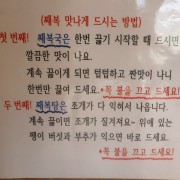 (째복 맛나게 드시는 방법)
첫 번째! 째복국은 한번 끓기 시작할 때 드시면
깔끔한 맛이 나요.
계속 끓이게 되면 텁텁하고 짠맛이 나니
한번만 끓여 드세요. *꼭 불을 끄고 드세요!
두 번째! 째복탕은 조개가 다 익혀서 나옵니다.
계속 끓이면 조개가 질겨져요~ 위에 있는
팽이 버섯과 부추가 익으면 바로 드세요.
*꼭 불을 끄고 드세요!